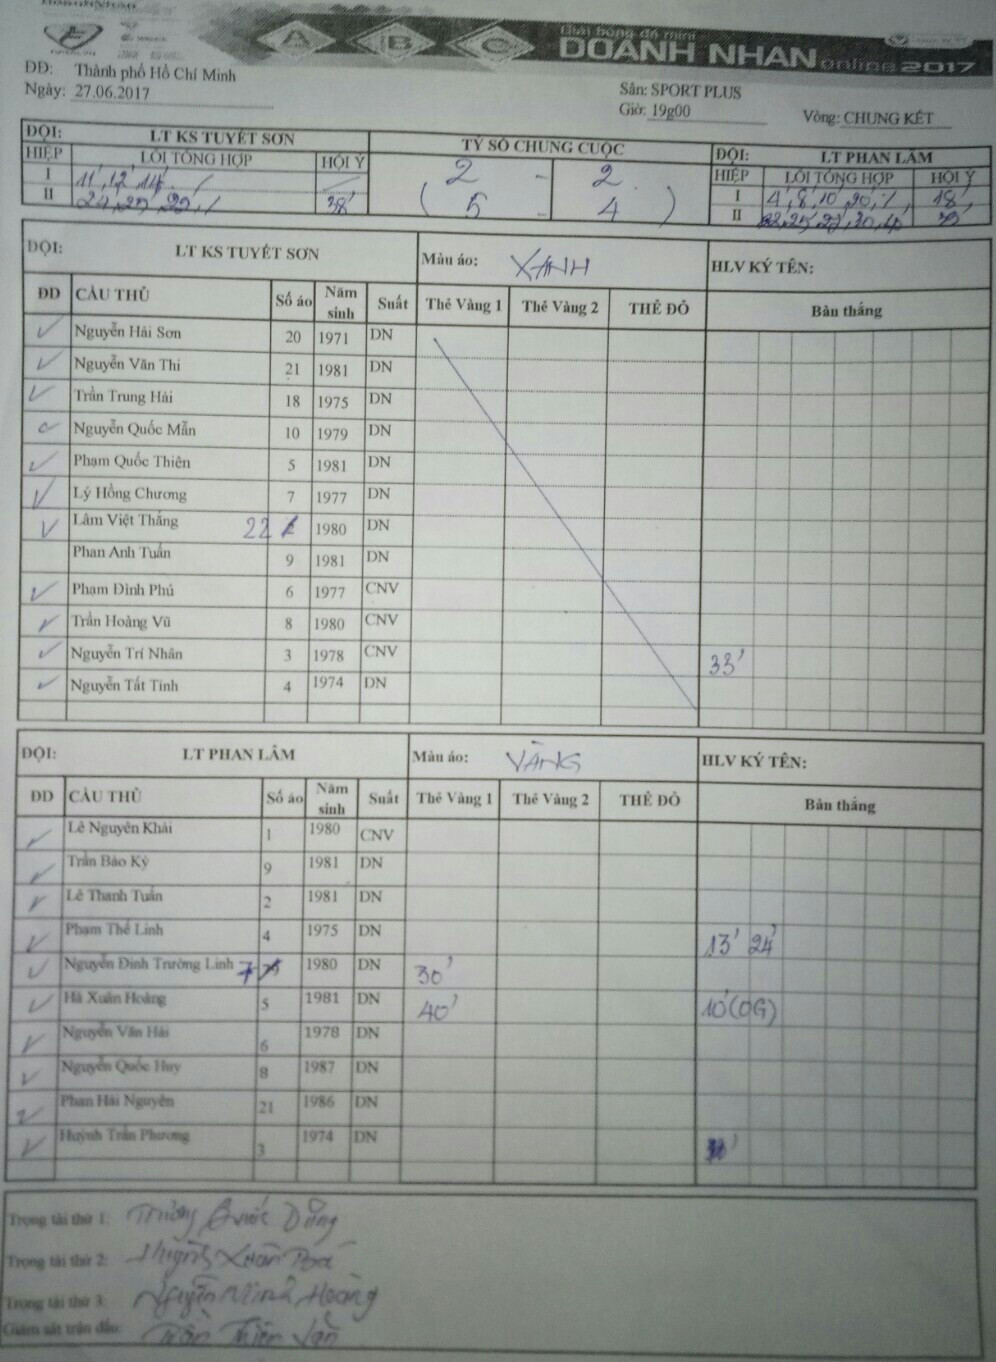 A B C
Giải bóng đá mini
DOANH NHÂN online 2017
DĐ: Thành phố Hồ Chí Minh
Ngày: 27.06.2017
Sân: SPORT PLUS
Giờ: 19g00
Vòng: CHUNG KẾT
ĐỘI: LT KS TUYẾT SƠN TỶ SỐ CHUNG CUỘC ĐỘI: LT PHAN LÂM
HIỆP LỖI TỔNG HỢP HỘI Ý 2 - 2 HIỆP LỖI TỔNG HỢP HỘI Ý
I 11', 12', 14' / I 4', 8', 10', 20', /, 18'
II 24, 25, 29, / 38' ( 5 - 4 ) II
ĐỘI: LT KS TUYẾT SƠN Màu áo: XANH HLV KÝ TÊN:
ĐD CẦU THỦ Số áo Năm sinh Suất Thẻ Vàng 1 Thẻ Vàng 2 THẺ ĐỎ Bàn thắng
Nguyễn Hải Sơn 20 1971 DN
Nguyễn Văn Thi 21 1981 DN
Trần Trung Hải 18 1975 DN
Nguyễn Quốc Mẫn 10 1979 DN
Phạm Quốc Thiên 5 1981 DN
Lý Hồng Chương 7 1977 DN
Lâm Việt Thắng 22 1980 DN
Phan Anh Tuấn 9 1981 DN
Phạm Đình Phú 6 1977 CNV
Trần Hoàng Vũ 8 1980 CNV
Nguyễn Trí Nhân 3 1978 CNV 33'
Nguyễn Tất Tinh 4 1974 DN
ĐỘI: LT PHAN LÂM Màu áo: VÀNG HLV KÝ TÊN:
ĐD CẦU THỦ Số áo Năm sinh Suất Thẻ Vàng 1 Thẻ Vàng 2 THẺ ĐỎ Bàn thắng
Lê Nguyên Khải 1 1980 CNV
Trần Bảo Kỳ 9 1981 DN
Lê Thanh Tuấn 2 1981 DN
Phạm Thế Linh 4 1975 DN 13' 24'
Nguyễn Đình Trường Linh 7 1980 DN 30'
Hà Xuân Hoàng 5 1981 DN 40' 10'(OG)
Nguyễn Văn Hải 6 1978 DN
Nguyễn Quốc Huy 8 1987 DN
Phan Hải Nguyên 21 1986 DN
Huỳnh Trần Phương 3 1974 DN
Trọng tài thứ 1: Trương Quốc Dũng
Trọng tài thứ 2: Xuân
Trọng tài thứ 3: Nguyễn Minh Hoàng
Giám sát trận đấu: Trần Thiện